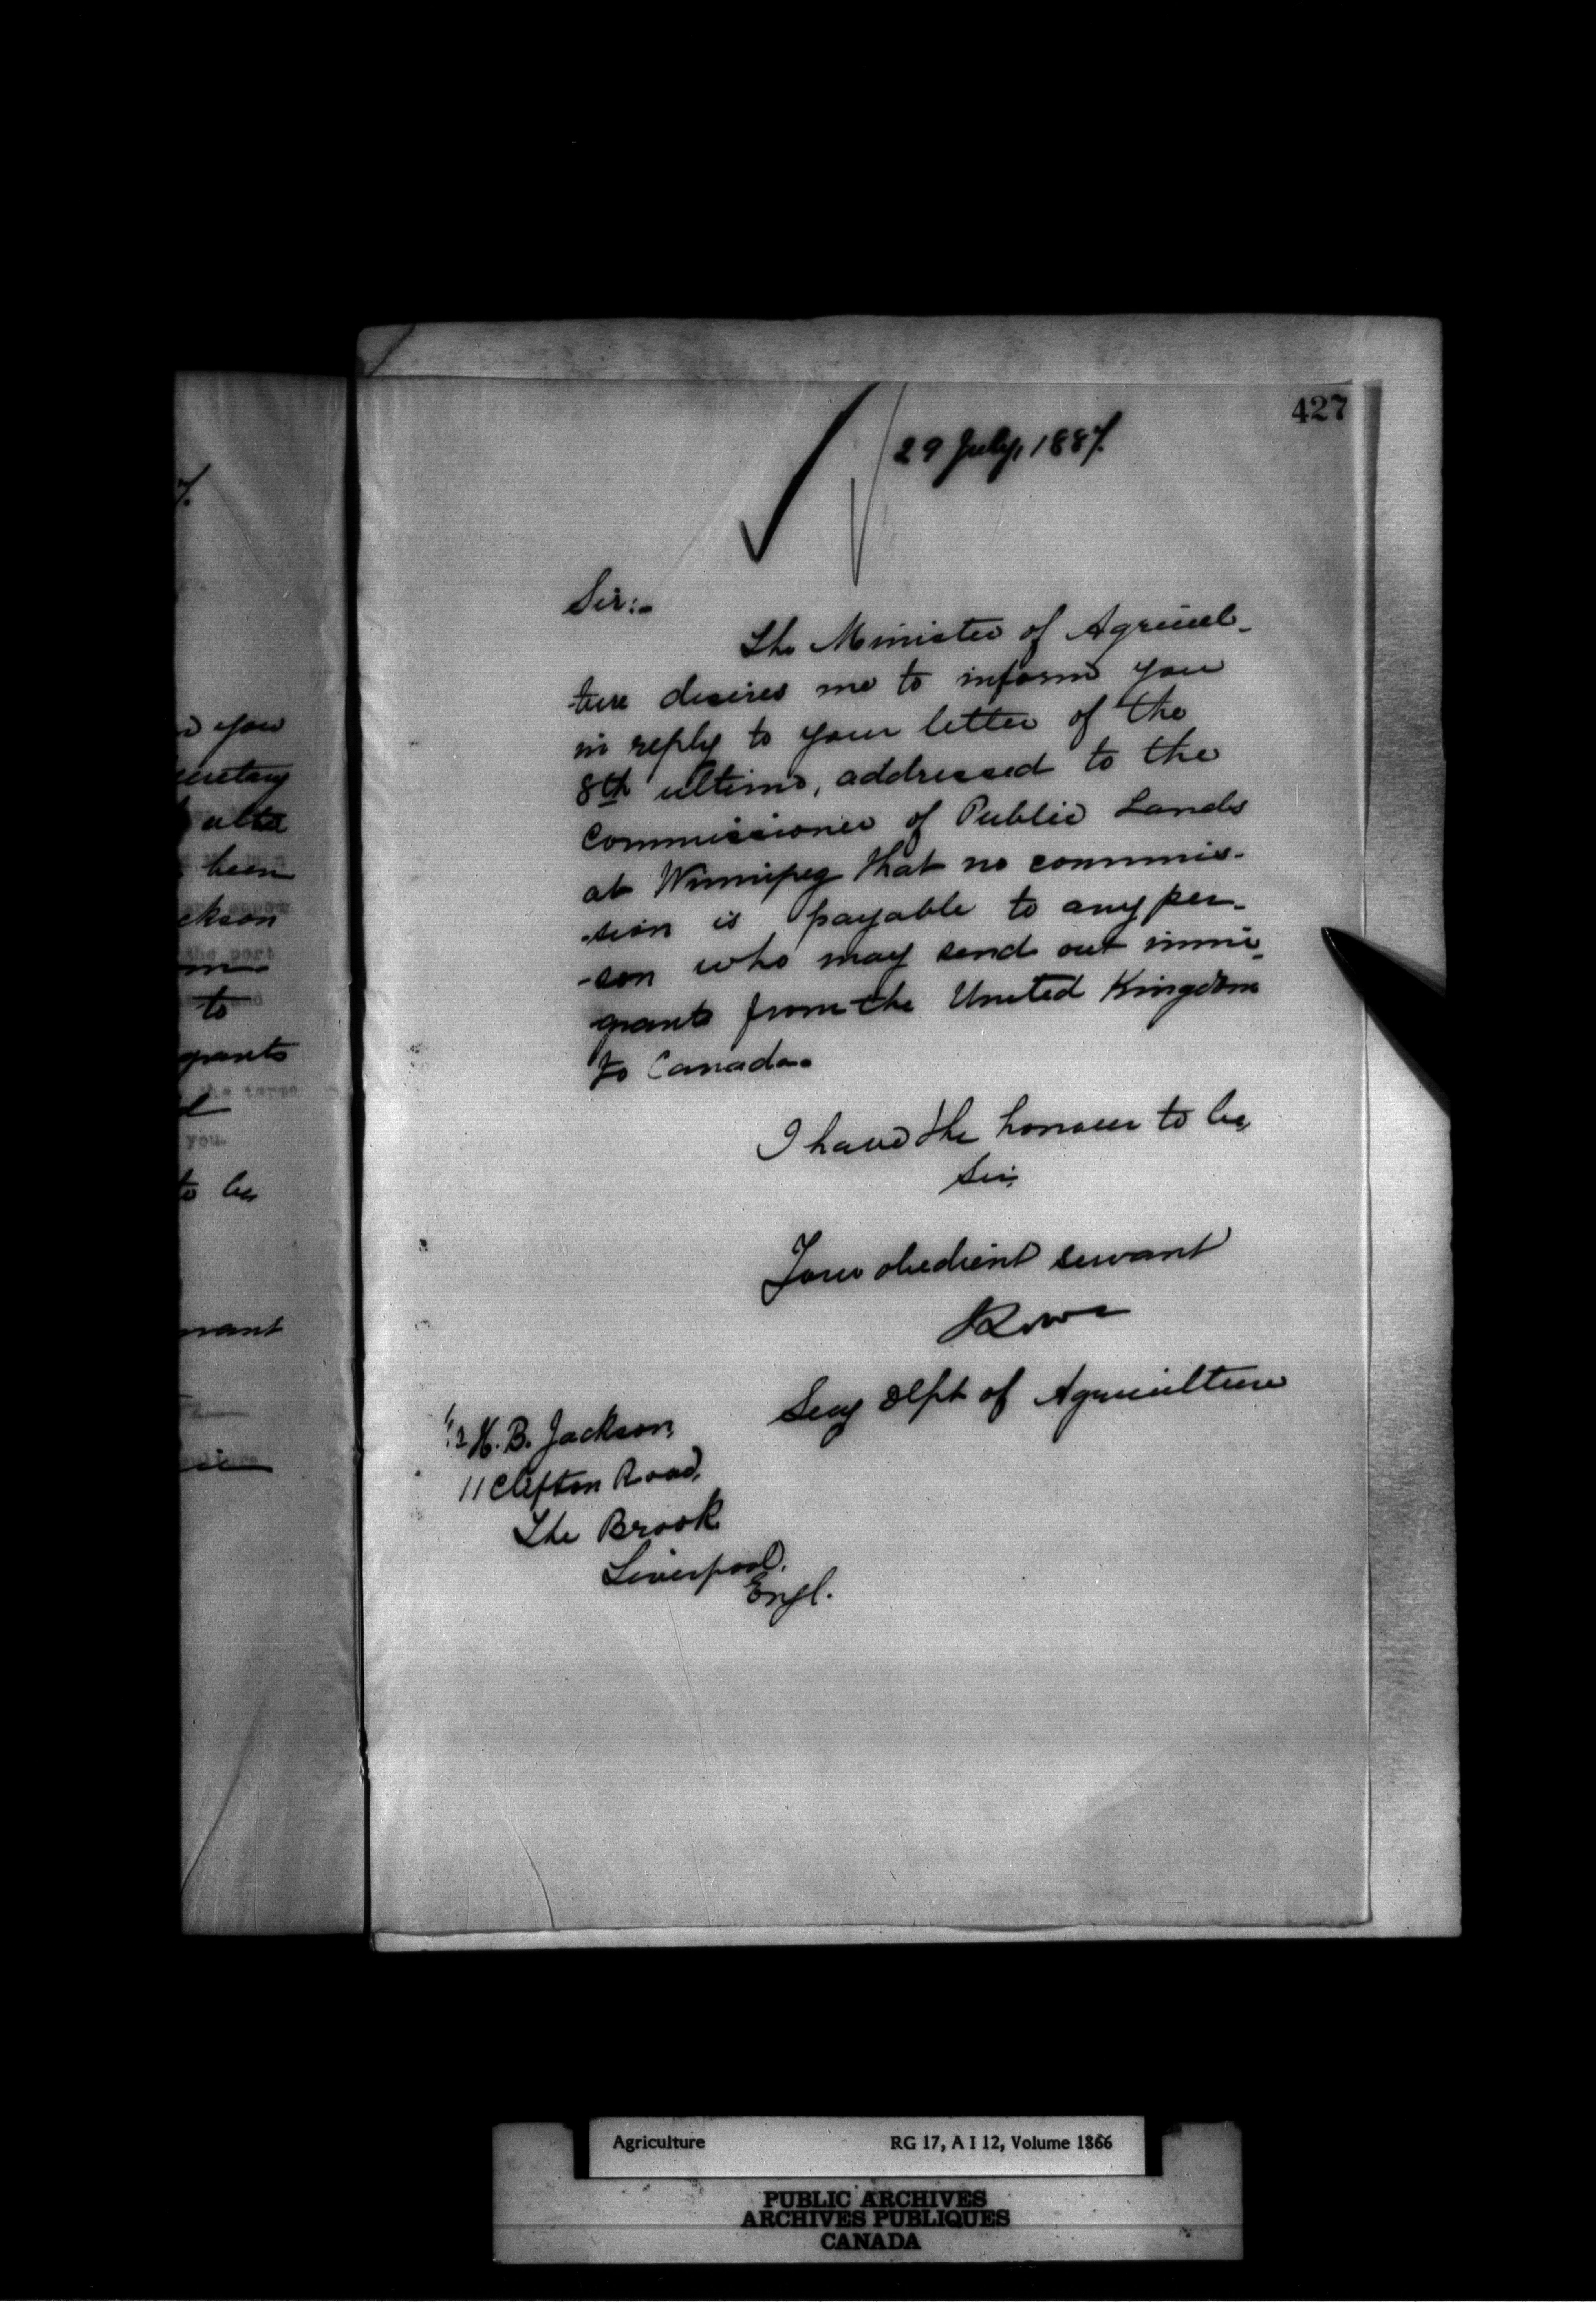 427
29 July, 1887.
Sir:-
The Minister of Agricul-
-ture desires me to inform you
in reply to your letter of the
8th ultimo, addressed to the
Commissioner of Public Lands
at Winnipeg that no commis-
-sion is payable to any per-
-son who may send out immi-
grants from the United Kingdom
to Canada.
I have the honour to be,
Sir,
Your obedient servant
Secy Dept of Agriculture
H. B. Jackson,
11 Clifton Road,
The Brook
Liverpool.
Engl.
you
alta
been
ckson
the port
to
grants
you.
to be,
Agriculture RG 17, A I 12, Volume 1866
PUBLIC ARCHIVES
ARCHIVES PUBLIQUES
CANADA